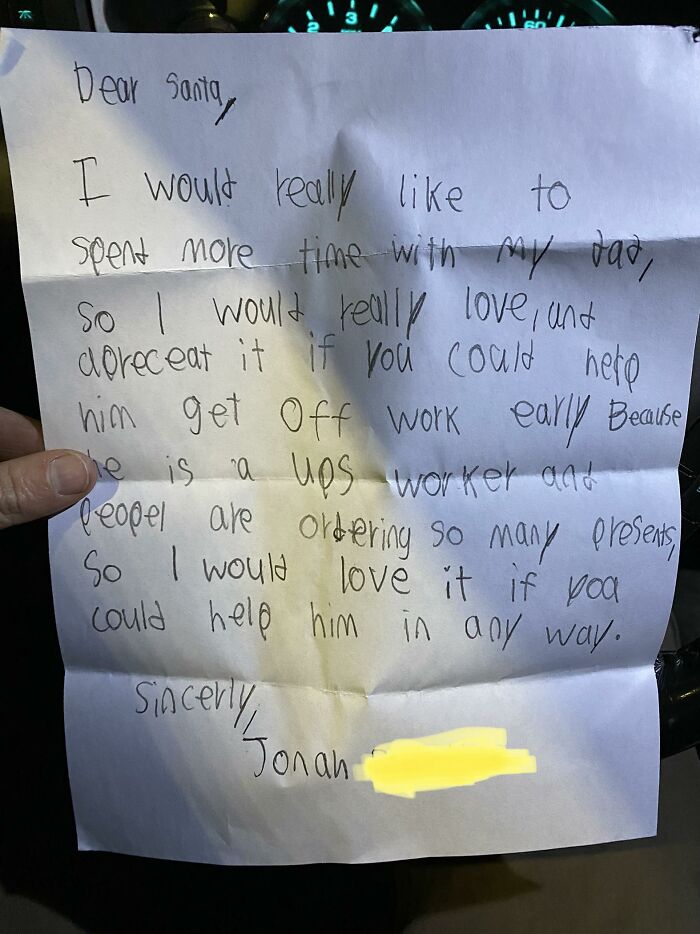 Dear Santa,
I would really like to
spend more time with my dad,
so I would really love, and
apreceat it if you could help
him get Off work early Because
he is a ups worker and
peopel are ordering so many presents,
So I would love it if you
could help him in any way.
Sincerly,
Jonah
2 3
60